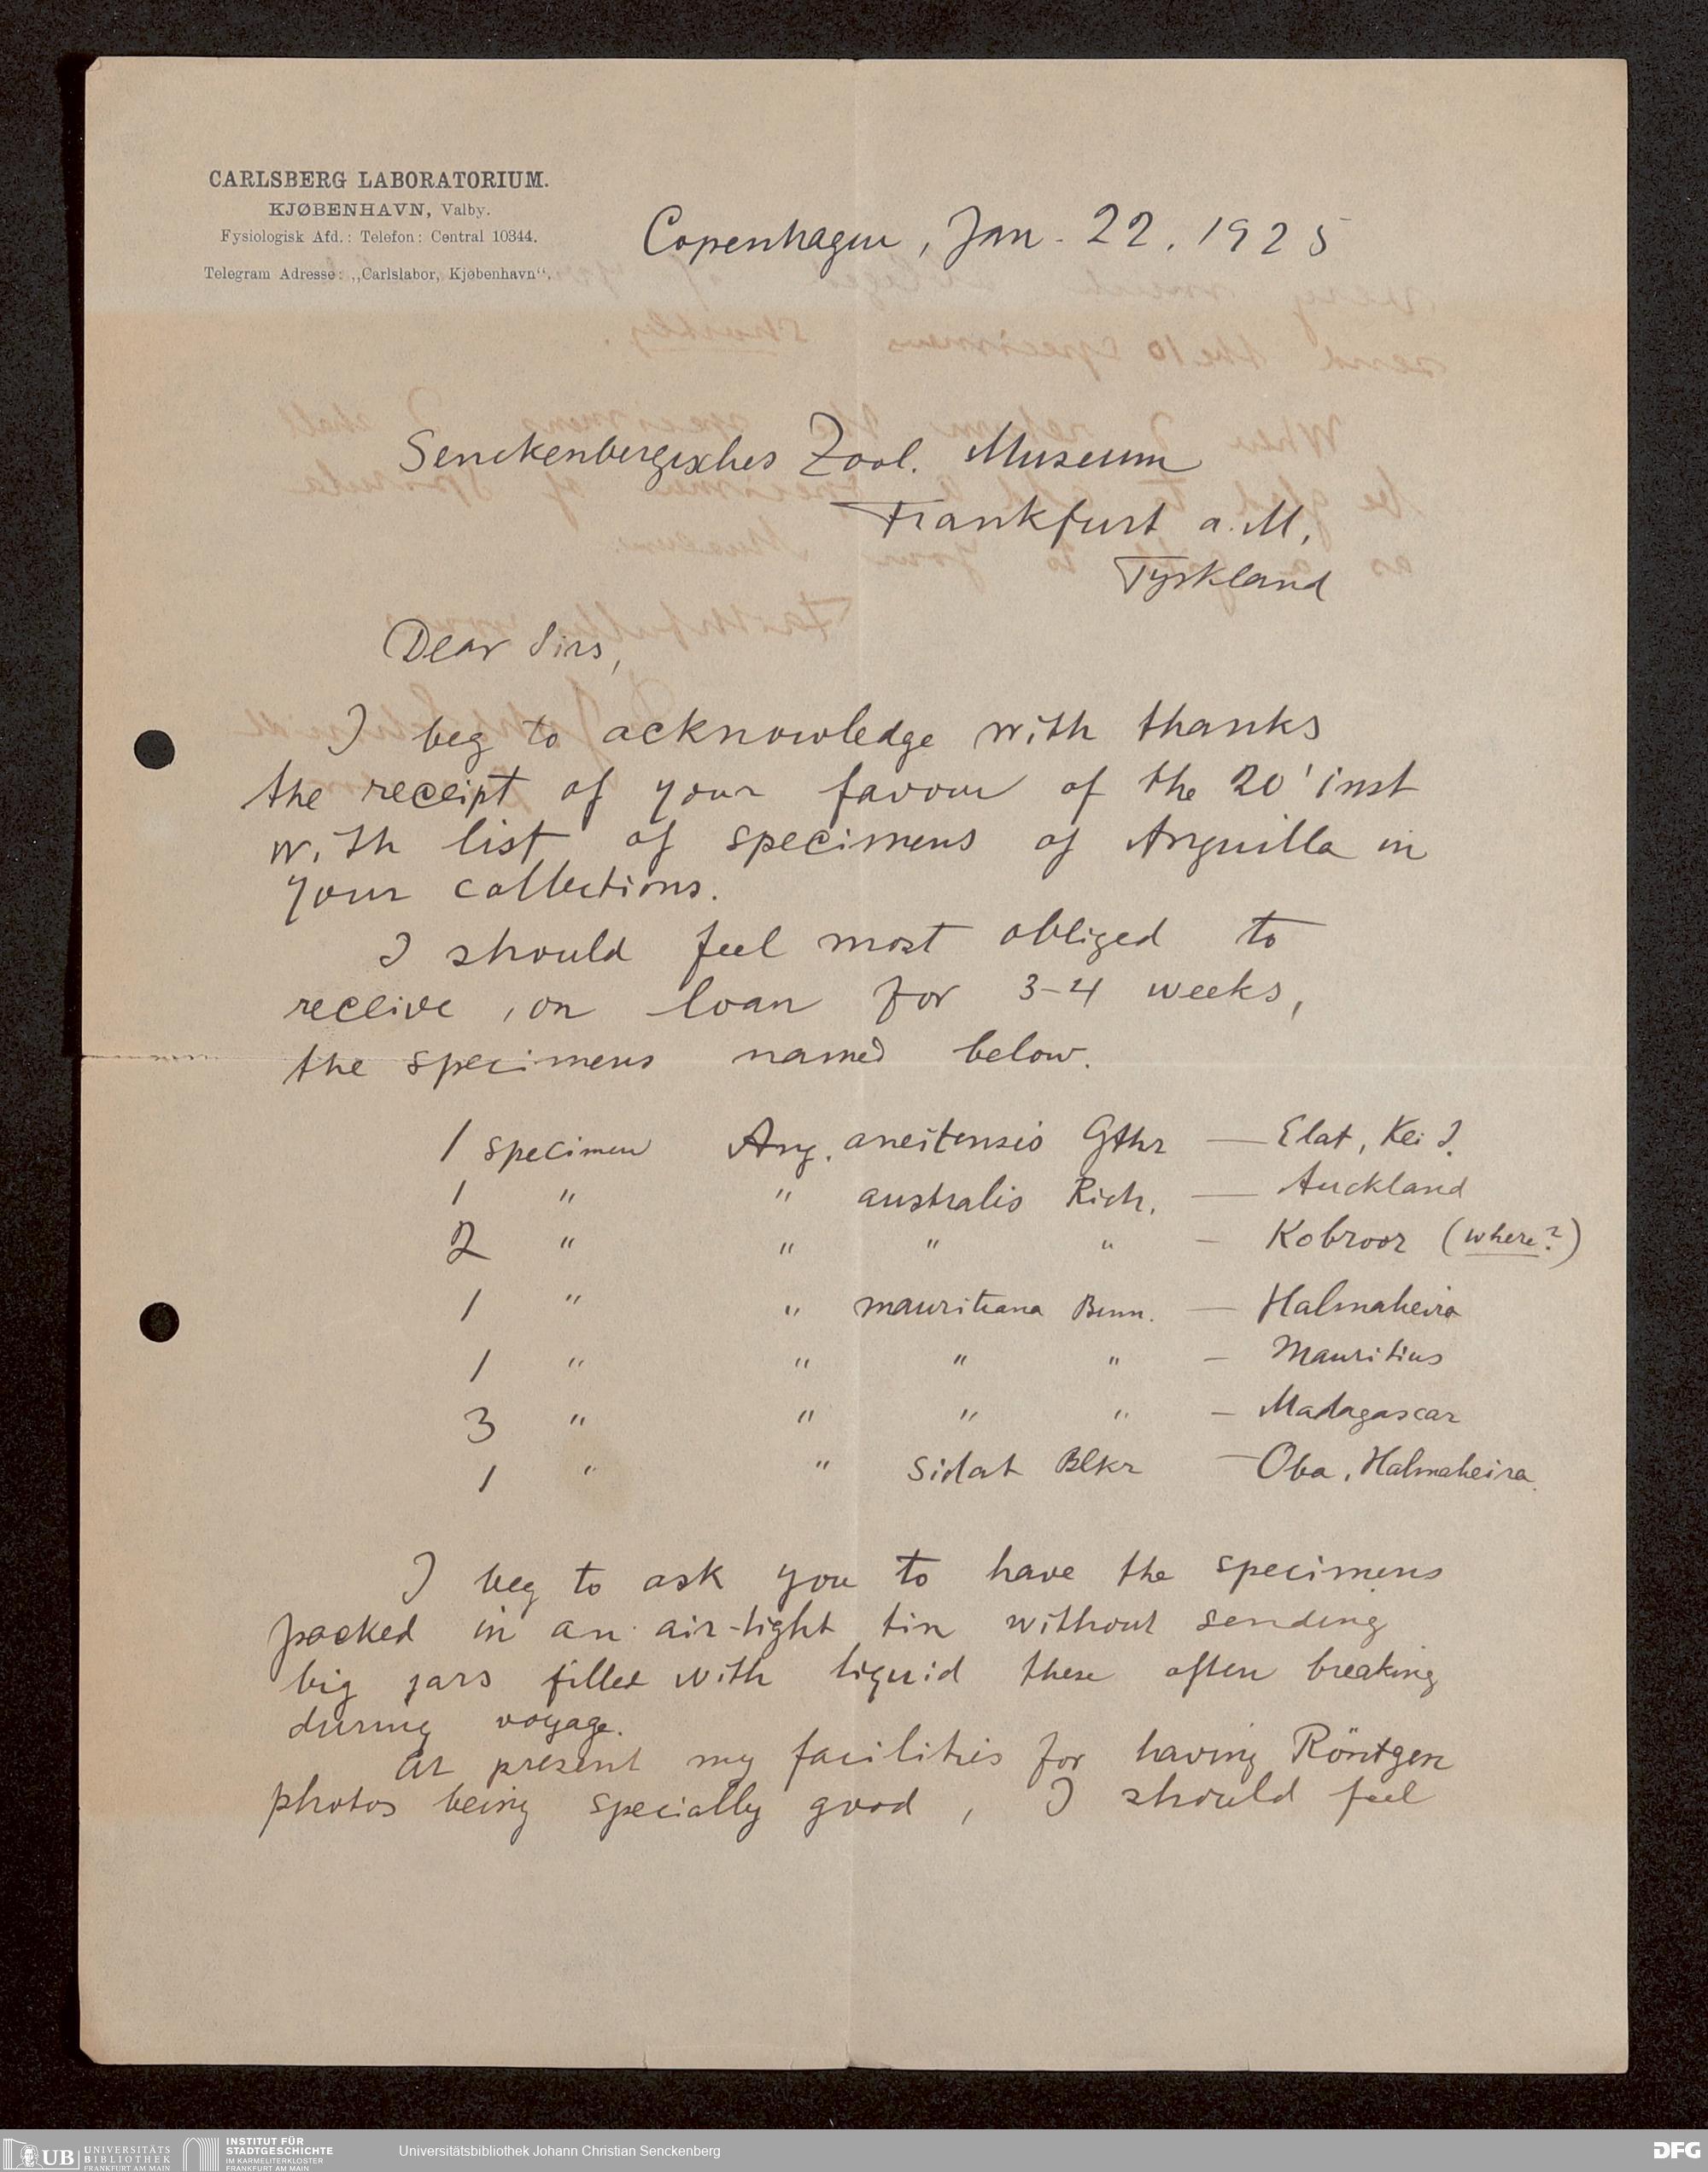 CARLSBERG LABORATORIUM.
KJØBENHAVN, Valby.
Fysiologisk Afd.: Telefon: Central 10344.
Telegram Adresse: „Carlslabor, Kjøbenhavn“.
Copenhagen, Jan. 22. 1925
Senckenbergisches Zool. Museum
Frankfurt a. M,
Tyskland
Dear Sirs,
I beg to acknowledge with thanks
the receipt of your favour of the 20' inst
with list of specimens of Anguilla in
your collections.
I should feel most obliged to
receive, on loan for 3-4 weeks,
the specimens named below.
1 specimen Ang. aneitensis Gthr — Elat, Kei I.
1 " " australis Rich. — Auckland
2 " " " " – Kobroor (where?)
1 " " mauritiana Benn. — Halmaheira
1 " " " " – Mauritius
3 " " " " – Madagascar
1 " " Sidat Blkr – Oba, Halmaheira.
I beg to ask you to have the specimens
packed in an air-tight tin without sending
big jars filled with liquid these often breaking
during voyage.
At present my facilities for having Röntgen
photos being specially good, I should feel
UB UNIVERSITÄTS
BIBLIOTHEK
FRANKFURT AM MAIN
INSTITUT FÜR
STADTGESCHICHTE
IM KARMELITERKLOSTER
FRANKFURT AM MAIN
Universitätsbibliothek Johann Christian Senckenberg
DFG